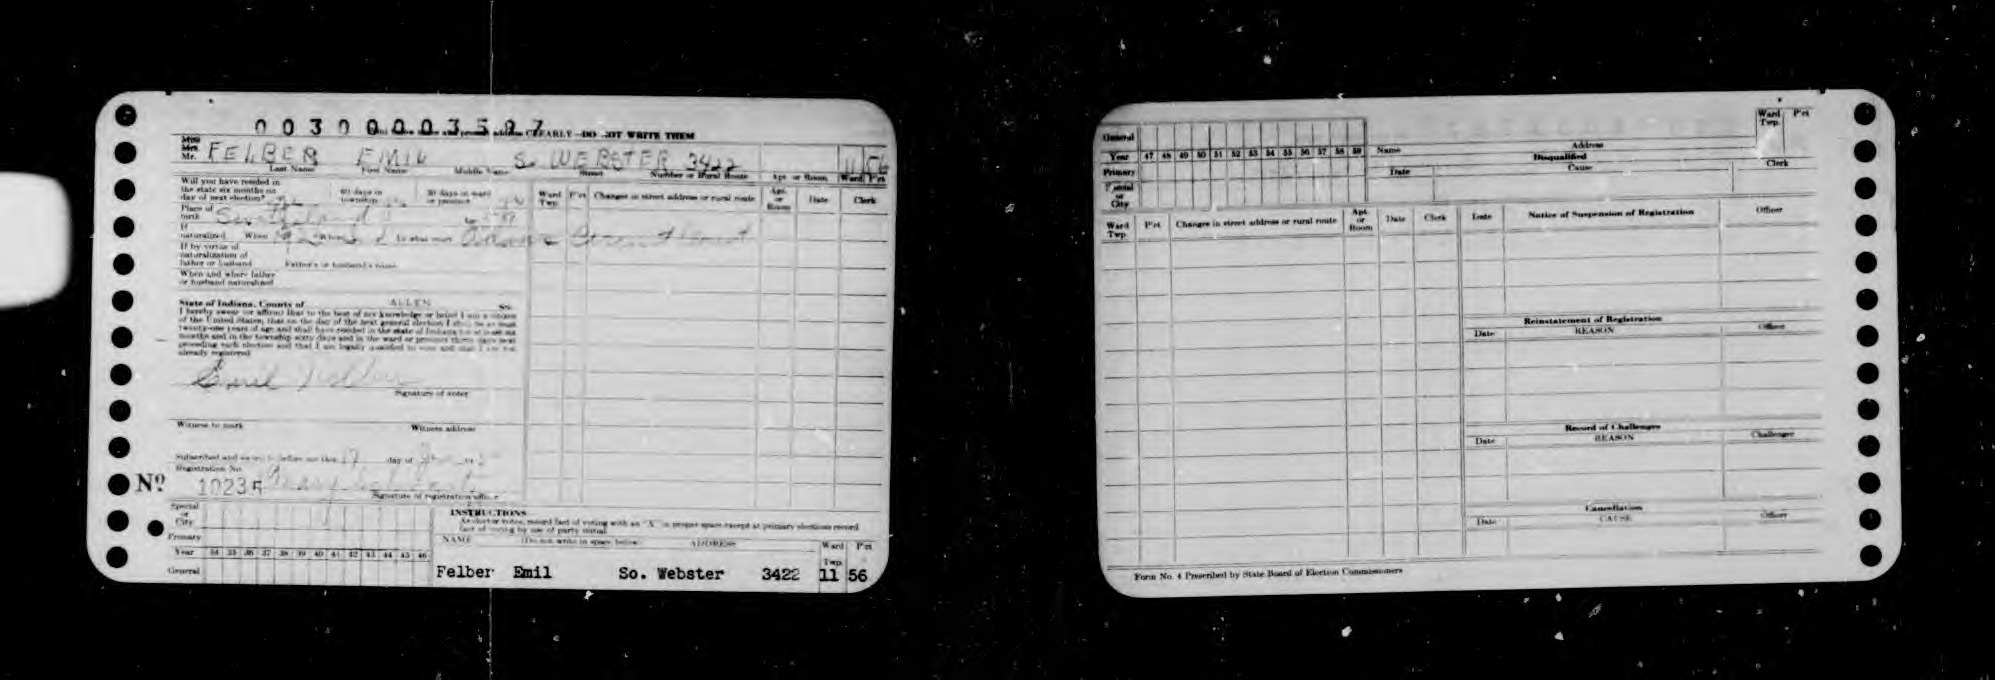 00300003507
CLEARLY—DO NOT WRITE THEM
Miss
Mrs.
Mr. FELBER EMIL S. WEBSTER 3422 11 56
Last Name First Name Middle Name Street Number or Rural Route Apt. or Room Ward P'ct
Will you have resided in
the state six months on 60 days in 30 days in ward
day of next election? township or precinct
Ward Twp. P'ct Changes in street address or rural route Apt. or Room Date Clerk
Place of
birth Switzerland
If
naturalized When Where In what court Court
If by virtue of
naturalization of
father or husband Father's or husband's name
When and where father
or husband naturalized
State of Indiana, County of ALLEN SS:
I hereby swear (or affirm) that to the best of my knowledge or belief I am a citizen
of the United States; that on the day of the next general election I shall be at least
twenty-one years of age and shall have resided in the state of Indiana for at least six
months and in the township sixty days and in the ward or precinct thirty days next
preceding such election and that I am legally qualified to vote and that I am not
already registered
Emil Felber
Signature of voter
Witness to mark Witness address
Subscribed and sworn to before me this 19 day of
Registration No.
No 10235
Signature of registration officer
Special
or
City
Primary
Year 34 35 36 37 38 39 40 41 42 43 44 45 46
General
INSTRUCTIONS
As elector votes, record fact of voting with an "X" in proper space except at primary elections record
fact of voting by use of party initial
NAME (Do not write in space below) ADDRESS Ward Twp. P'ct
Felber Emil So. Webster 3422 11 56
General
Year 47 48 49 50 51 52 53 54 55 56 57 58 59
Primary
Special
or
City
Name Address Ward Twp. P'ct
Disqualified
Date Cause Clerk
Ward Twp. P'ct Changes in street address or rural route Apt. or Room Date Clerk
Date Notice of Suspension of Registration Officer
Reinstatement of Registration
Date REASON Officer
Record of Challenges
Date REASON Challenger
Cancellation
Date CAUSE Officer
Form No. 4 Prescribed by State Board of Election Commissioners